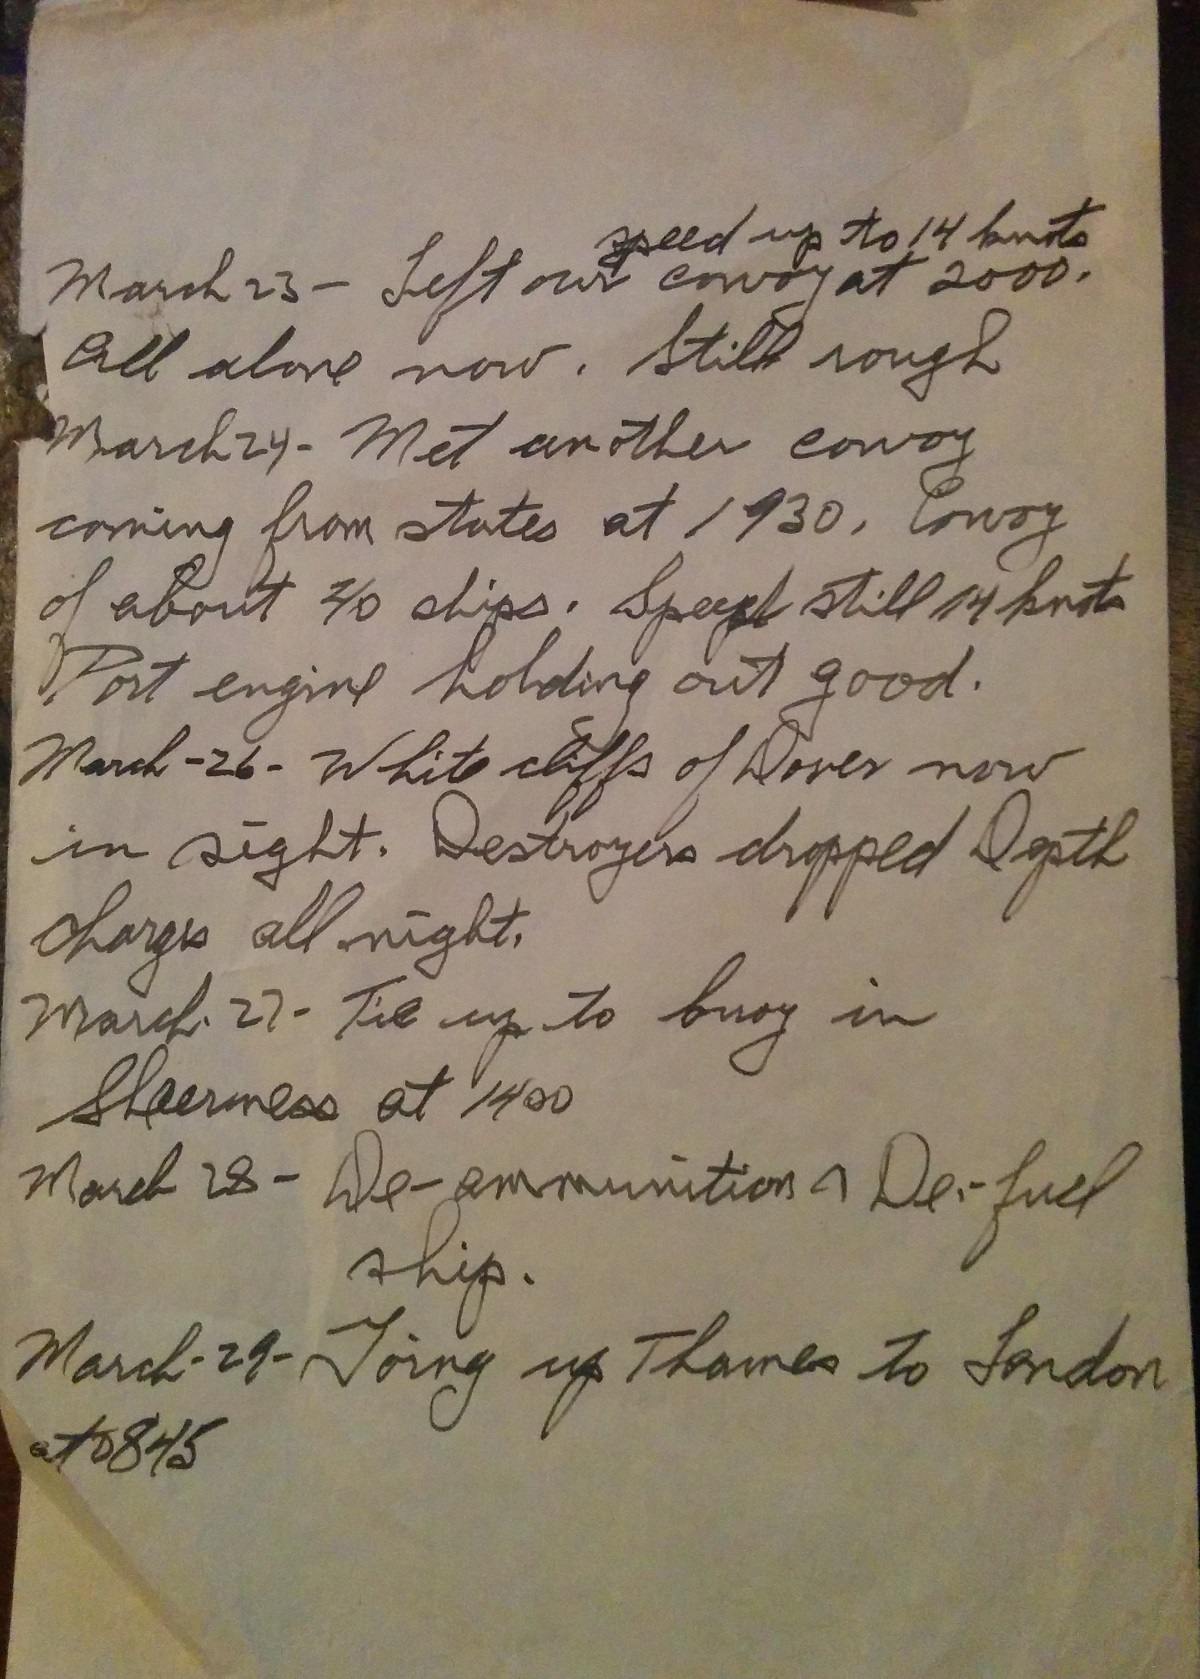 speed up to 14 knots
March 23 - Left our convoy at 2000.
All alone now. Still rough
March 24 - Met another convoy
coming from states at 1930. Convoy
of about 40 ships. Speed still 14 knots
Port engine holding out good.
March - 26 - White cliffs of Dover now
in sight. Destroyers dropped Depth
charges all night.
March. 27 - Tie up to buoy in
Sheerness at 1400
March 28 - De-ammunition & De-fuel
ship.
March - 29 - Going up Thames to London
at 0845